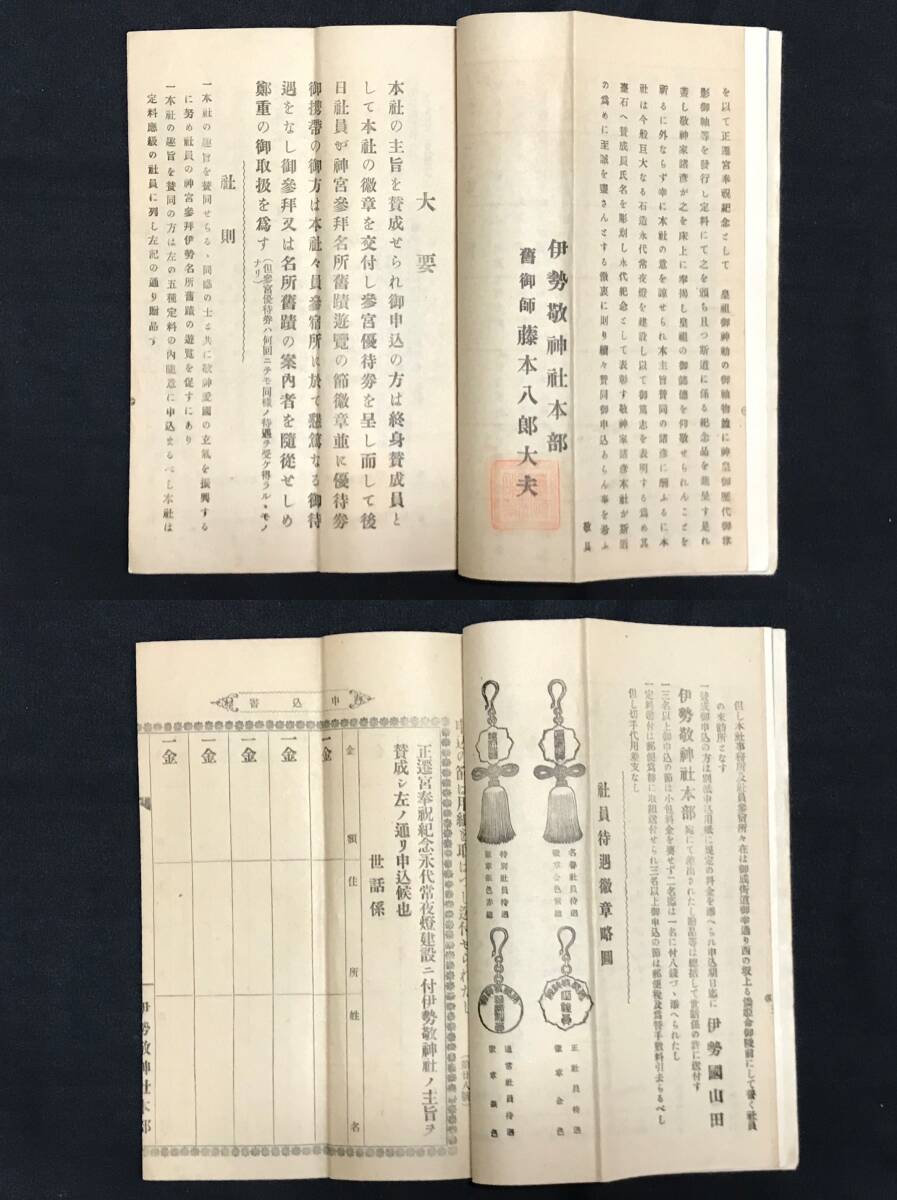 を以て正遷宮奉祝紀念として 皇祖御神勅の御軸物並に神皇御歴代御尊
影御軸等を發行し定料にて之を頒ち且つ斯道に係る紀念品を進呈す是れ
普し敬神家諸彦が之を床上に奉掲し皇祖の御德を仰敬せられんことを
祈るに外ならず幸に本社の意を諒せられ本主旨賛同の諸彦に酬ふるに本
社は今般巨大なる石造永代常夜燈を建設し以て御篤志を表明する爲め其
臺石へ賛成員氏名を彫刻し永代紀念として表彰す敬神家諸彦本社が斯道
の爲めに至誠を盡さんとする微衷に則り續々賛同御申込あらん事を希ふ
敬具
伊勢敬神社本部
舊御師 藤本八郎大夫
大要
本社の主旨を賛成せられ御申込の方は終身賛成員と
して本社の徽章を交付し參宮優待劵を呈し而して後
日社員が神宮參拜名所舊蹟遊覽の節徽章並に優待劵
御携帶の御方は本社々員參宿所に於て懇篤なる御待
遇をなし御參拜又は名所舊蹟の案内者を隨從せしめ
鄭重の御取扱を爲す(但參宮優待劵ハ何回ニテモ同樣ノ待遇ヲ受ケ得ラルヽモノナリ)
社則
一本社の趣旨を賛同せらるゝ同感の士と共に敬神愛國の立氣を振興する
に努め社員の神宮參拜伊勢名所舊蹟の遊覽を促すにあり
一本社の趣旨を賛同の方は左の五種定料の内隨意に申込まるべし本社は
定料應級の社員に列し左記の通り贈品す
但し本社事務所及社員參宿所々在は御成街道御幸通り西の坂上る
の來訪所となす
一賛成御申込の方は別紙申込用紙に規定の料金を添へられ申込期日迄に 伊勢國山田
伊勢敬神社本部 宛にて差出されたし贈品等は總括して世話係の許に送付す
一三名以上御申込の節は小包料金を要せず二名迄は一名に付八錢づゝ添へられたし
一定料送付は郵便爲替に取組送付せられ三名以上御申込の節は郵便税及爲替手數料引去らるべし
但し切手代用差支なし
社員待遇徽章略圖
名譽社員待遇
徽章金色紫總
特別社員待遇
徽章銀色赤總
正社員待遇
徽章金色
通常社員待遇
徽章銀色
申込書
正遷宮奉祝紀念永代常夜燈建設ニ付伊勢敬神社ノ主旨ヲ
賛成シ左ノ通リ申込候也
世話係
金額 住所 姓名
一金
一金
一金
一金
一金
伊勢敬神社本部